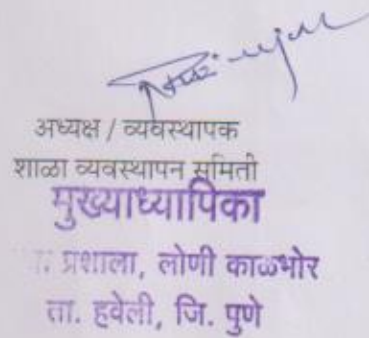 अध्यक्ष / व्यवस्थापक
शाळा व्यवस्थापन समिती
मुख्याध्यापिका
प्रशाला, लोणी काळभोर
ता. हवेली, जि. पुणे